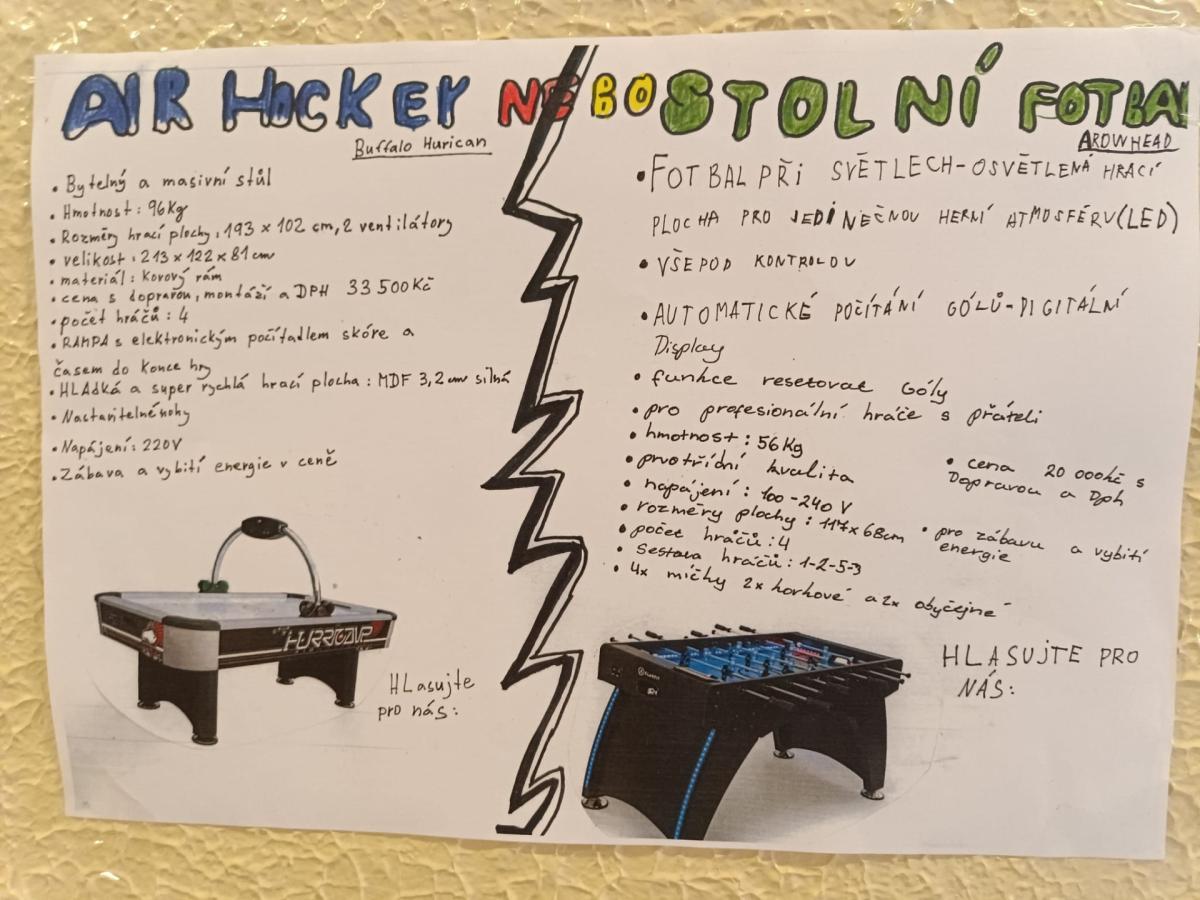 AIR HOCKEY NEBO STOLNÍ FOTBAL
Buffalo Hurican
• Bytelný a masivní stůl
• Hmotnost : 96Kg
• Rozměry hrací plochy : 193 x 102 cm, 2 ventilátory
• velikost : 213 x 122 x 81 cm
• materiál : Kovový rám
• cena s dopravou, montáží a DPH 33 500Kč
• počet hráčů : 4
• RAMPA s elektronickým počítadlem skóre a
časem do konce hry
• HLAdká a super rychlá hrací plocha : MDF 3,2 cm silná
• Nastavitelné nohy
• Napájení: 220V
• Zábava a vybití energie v ceně
HURRICANE
HLasujte
pro nás:
AROWHEAD
• FOTBAL PŘI SVĚTLECH-OSVĚTLENÁ HRACÍ
PLOCHA PRO JEDINEČNOU HERNÍ ATMOSFÉRU(LED)
• VŠE POD KONTROLOU
• AUTOMATICKÉ POČÍTÁNÍ GÓLŮ-DIGITÁLNÍ
Display
• funkce resetovat Góly
• pro profesionální hráče s přáteli
• hmotnost : 56Kg
• prvotřídní kvalita
• napájení : 100-240 V
• rozměry plochy : 117x68cm
• počet hráčů : 4
• Sestava hráčů : 1-2-5-3
• 4x míčky 2x korkové a 2x obyčejné
• cena 20 000kč s
Dopravou a Dph
• pro zábavu a vybití
energie
HLASUJTE PRO
NÁS: